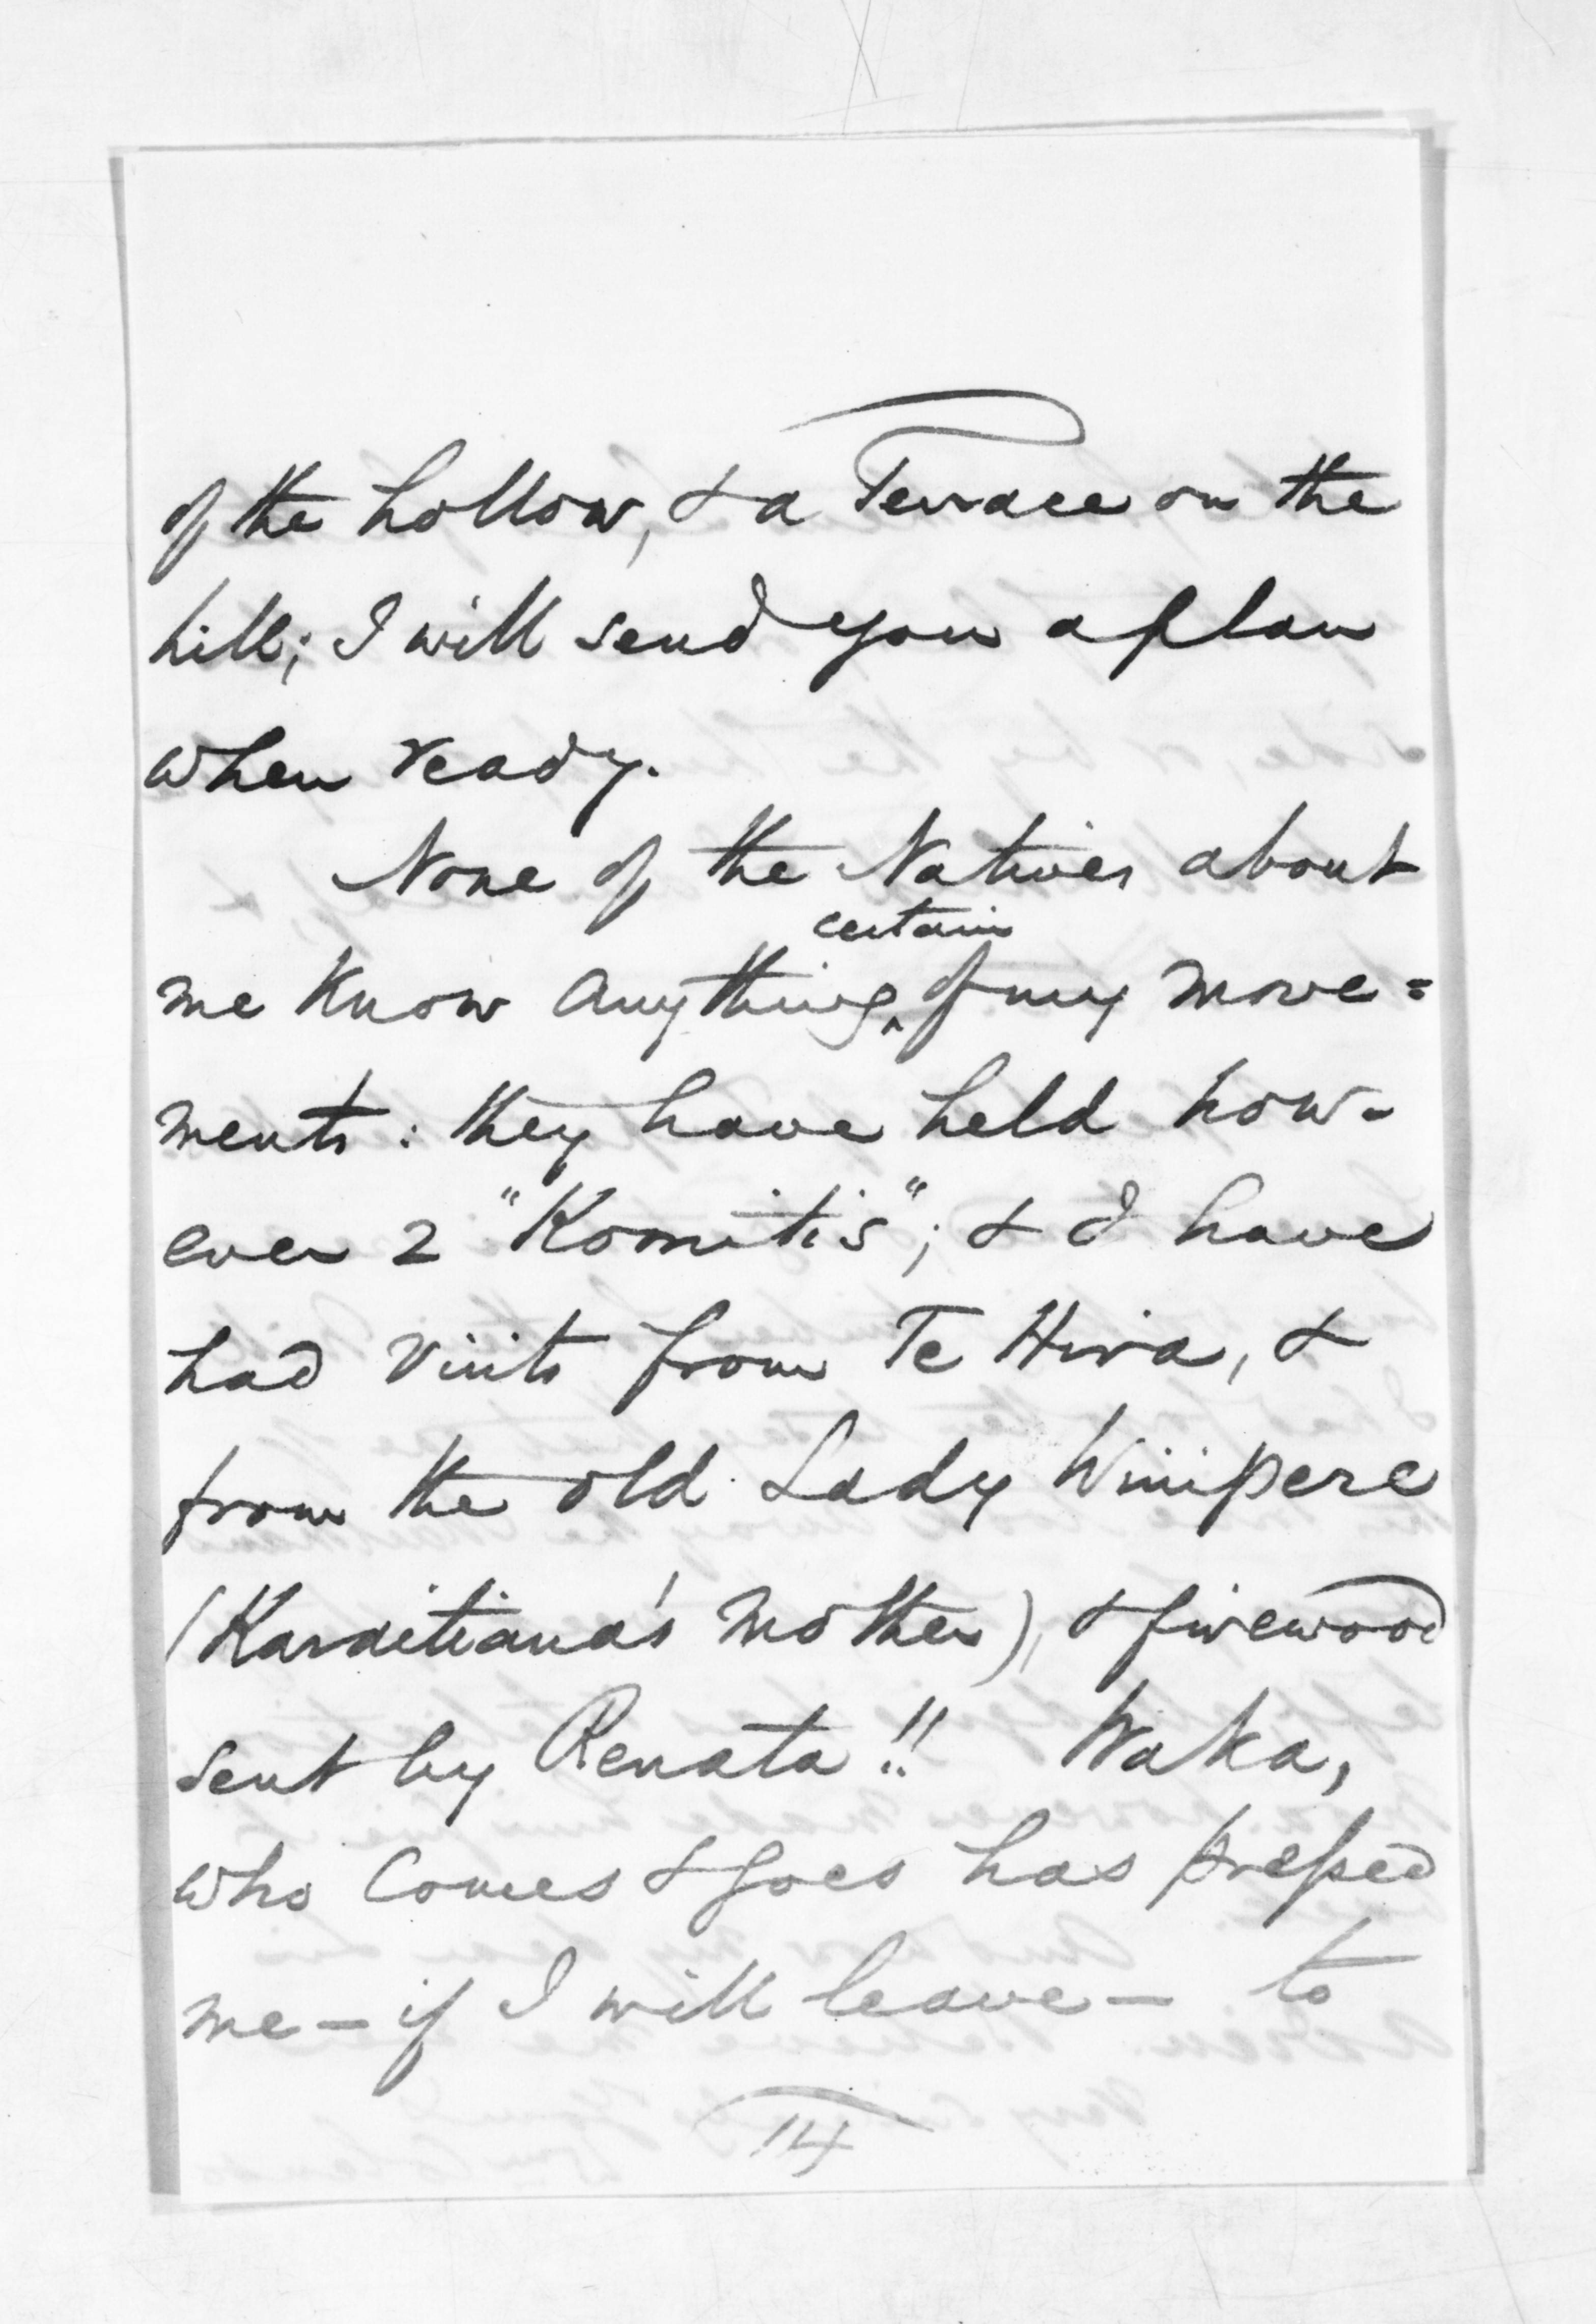 of the hollow, & a Terrace on the
hill; I will send you a plan
when ready.
None of the Natives about
certain
me know anything ‸ of my move=
ments: they have held how-
ever 2 "Komitis"; & I have
had visits from Te Hira, &
from the old Lady Winipere
(Karaitiana's mother), & firewood
sent by Renata!! Waka,
who comes & goes has pressed
me – if I will leave – to
14